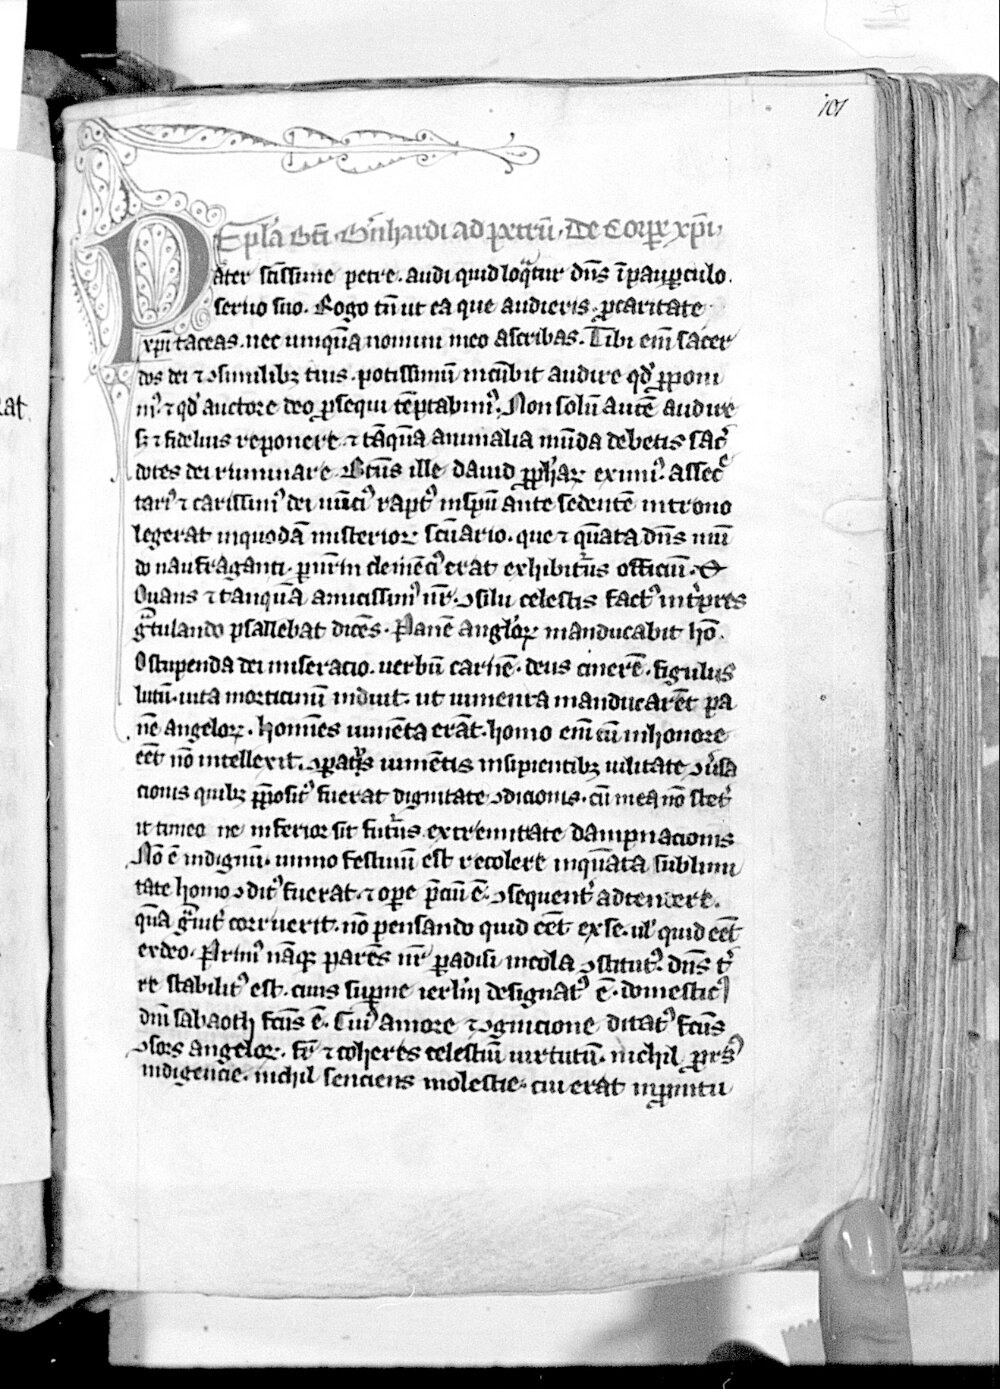 101
Epła bt̄i b̾nhardi ad petrū. De Corpe xp̄i.
Pater sc̄issime petre. audi quid loq̄tur dn̄s ī paup̱culo.
seruo suo. Rogo tn̄ ut ea que audieris. ꝓ caritate
xp̄i taceas. nec umquā nomini meo ascribas. Tibi em̄ sacer
dos dei ⁊ ꝯsimilibꝫ tuis. potissimū incūbit audire qd̾ ꝓponi
mꝰ. ⁊ qd̾ auctore deo ꝓsequi tēptabimꝰ. Non solū autē audire
sꝫ ⁊ fidelius reponere. ⁊ tāquā animalia mūda debetis sac̾
dotes dei ruminare. Btūs ille dauid ꝓph̾aꝝ eximiꝰ. assec
tariꝰ ⁊ carissimꝰ dei nūciꝰ raptꝰ in sp̄u ante sedentē in trono
legerat in quodā misterioꝝ scūario. que ⁊ quāta dn̄s mū
do naufraganti.
ouans ⁊ tanquā amicissimꝰ nr̄. ꝯsilii celestis factꝰ int̾pres
gr̄tulando psallebat dicēs. Panē angl̾oꝝ manducabit hō.
O stupenda dei miseracio. uerbū carnē. deus cinerē. figulus
lutū. uita morticinū induit. ut iumenta manducarēt pa
nē angeloꝝ. homīes iumēta erāt. homo em̄ cū in honore
eēt nō intellexit. ꝯparatꝰ iumētis insipientibꝫ uilitate ꝯu̾sa
cionis quibꝫ p̄positꝰ fuerat dignitate ꝯdicionis. cū in ea nō stet̾
it timeo ne inferior sit futur̄s extremitate dampnacionis
Nō ē indignū. immo festiuū est recolere in quāta sublimi
tate homo ꝯditꝰ fuerat. ⁊ ope p̄ciū ē. ꝯsequent̾ adtendere.
quā gr̄uit̾ corruerit. nō pensando quid eēt ex se. ul̾ quid eēt
ex deo. Primꝰ nāqꝫ parēs nr̄ paradisi incola ꝯstitutꝰ. dn̄s t̾
re stabilitꝰ est. ciuis sup̱ne ierl̾m designatꝰ ē. domesticꝰ
dn̄i sabaoth fc̄us ē. Cuiꝰ amore ⁊ ꝯgnicione ditatꝰ fc̄us
ꝯsors angeloꝝ. fr̄ ⁊ coheres celestiū uirtutū. nichil
indigencie. nichil senciens molestie. cui erat in ꝓmtu